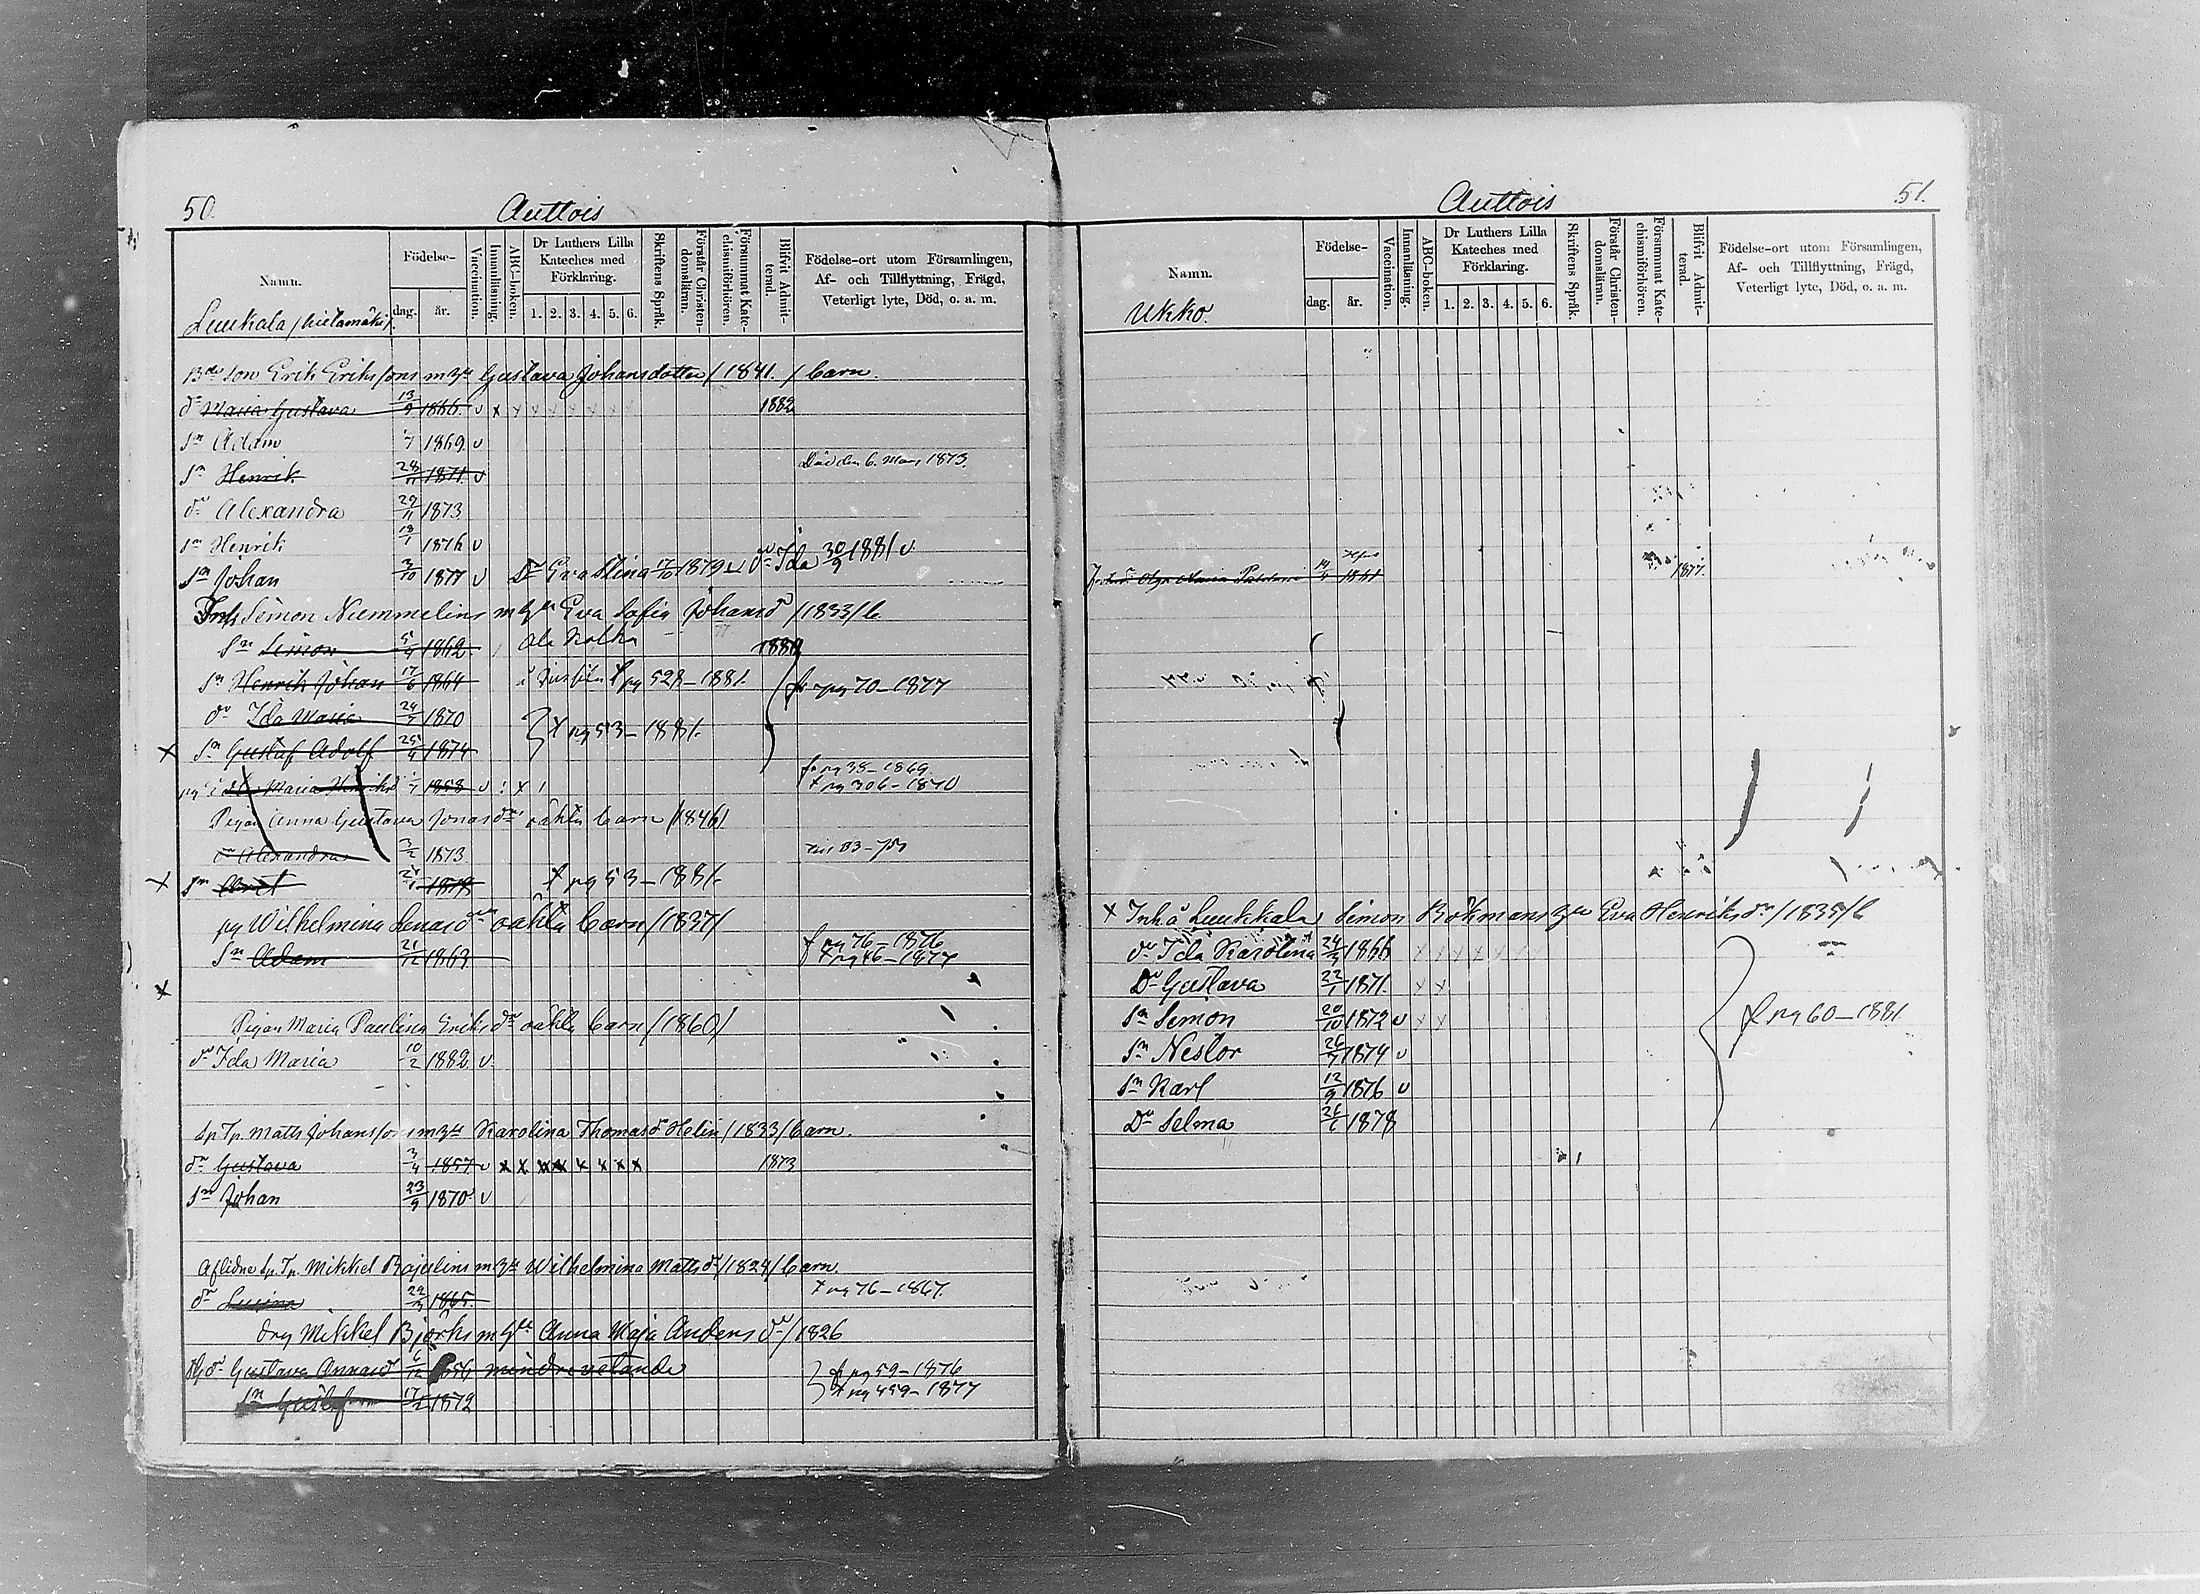 50.
Auttois
Namn.
Födelse-
dag.
år.
Vaccination.
Innanläsning.
ABC-boken.
Dr Luthers Lilla Kateches med Förklaring.
1. 2. 3. 4. 5. 6.
Skriftens Språk.
Förstår Christendomsläran.
Försummat Katechismiförhören.
Blifvit Admitterad.
Födelse-ort utom Församlingen,
Af- och Tillflyttning, Frägd,
Veterligt lyte, Död, o. a. m.
Luukala /hietamäki/
Bde son Erik Erikssons m hu Gustava Johansdotter /1841./ barn.
dr Maria Gustava 13/9 1866. v x x x x x x x 1882
sn Adam 1/7 1869. v
sn Henrik 28/11 1871. v Död den 6. Mars 1873.
dr Alexandra 29/11 1873
sn Henrik 18/1 1876 v
sn Johan 3/10 1877 v Dr Eva Stina 1/10 1879 v dr Ida 30/9 1881 v
Inh Simon Nummelins m hu Eva Sofia Johansdr /1833/ b.
sn Simon 5/4 1862. Ala Kolka 1880
sn Henrik Johan 17/6 1864 pg 528–1881. fr pg 70–1877
dr Ida Maria 24/7 1870
x sn Gustaf Adolf 25/4 1874 } t pg 53–1881.
pg Maria 1/7 1858 v : x / fr pg 38–1869
t pg 306–1870
Pigan Anna Gustava Jonasdrs oäkta barn /1846/
dr Alexandra 3/2 1873
x sn 1878 t pg 53–1881.
pg Wilhelmina Jonasdrs oäkta barn /1837/
sn Adam 21/12 1863 f pg 76–1876
t pg 46–1877
x
Pigan Maria Paulina Eriksdrs oäkta barn /1860/
dr Ida Maria 10/2 1882. v.
Sp Tp Matts Johansson m hu Karolina Thomasdr Helin /1833/ barn.
dr Gustava 3/4 1857 v x x x x x x x x 1873
sn Johan 23/9 1870 v
Aflidne Sp. Tp. Mikkel Bajulins m hu Wilhelmina Mattsdr /1824/ barn.
dr Lusina 22/3 1865. t pg 76–1867.
drg Mikkel Björks m hu Anna Maja Andersdr /1826
dr Gustava Annasdr 6/12 1854 mindrevetande } f pg 59–1876
sn Gustaf 17/12 1872 t pg 459–1877
Auttois
51.
Namn.
Födelse-
dag.
år.
Vaccination.
Innanläsning.
ABC-boken.
Dr Luthers Lilla Kateches med Förklaring.
1. 2. 3. 4. 5. 6.
Skriftens Språk.
Förstår Christendomsläran.
Försummat Katechismiförhören.
Blifvit Admitterad.
Födelse-ort utom Församlingen,
Af- och Tillflyttning, Frägd,
Veterligt lyte, Död, o. a. m.
Ukko.
Olga Maria 1861 1877.
x Inh å Luukkala Simon Bökmans hu Eva Henriksdr /1835/ b
dr Ida Karolina 24/3 1866 x x x x x x
Dr Gustava 22/1 1871. x x
sn Simon 20/10 1872 v x x
sn Nestor 26/7 1874 v
sn Karl 12/9 1876 v
Dr Selma 26/6 1878
f pg 60–1881